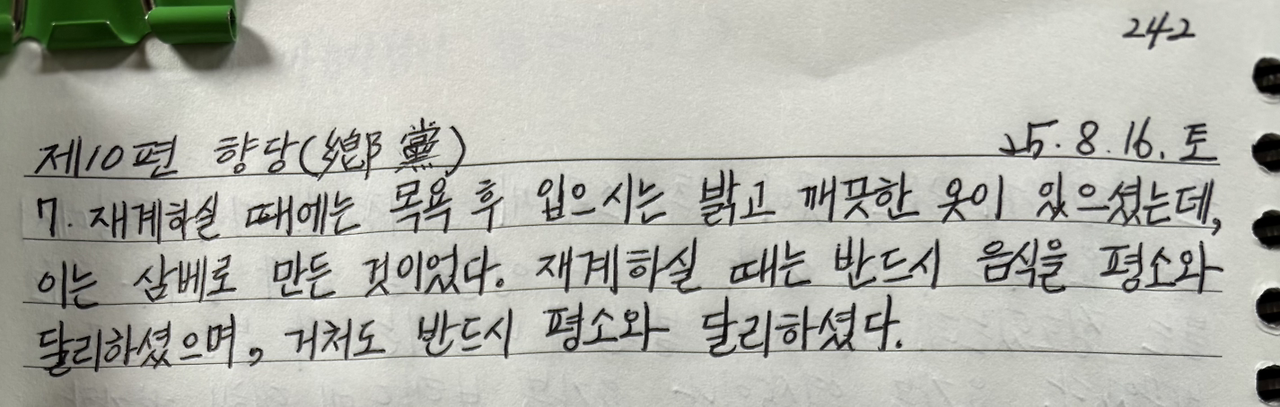 242
제10편 향당(鄕黨) 25.8.16.토
7. 재계하실 때에는 목욕 후 입으시는 밝고 깨끗한 옷이 있으셨는데,
이는 삼베로 만든 것이었다. 재계하실 때는 반드시 음식을 평소와
달리하셨으며, 거처도 반드시 평소와 달리하셨다.